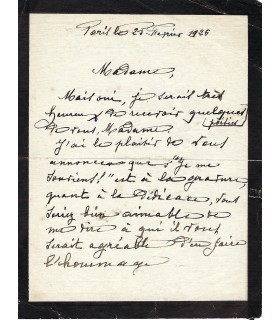 Paris le 25 Février 1925
Madame,
Mais oui, je serais très
heureux de recevoir quelques
poésies
de vous, Madame.
J'ai le plaisir de vous
annoncer que "Je me
souviens!" est à la gravure,
quant à la Dédicace, vous
seriez bien aimable de
me dire à qui il vous
serait agréable d'en faire
l'hommage